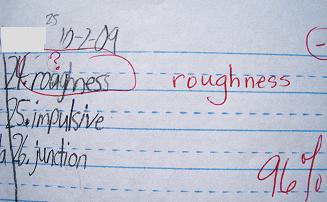 25
10-2-09
?
24. roaghness roughness
25. impulsive
26. junction
96%